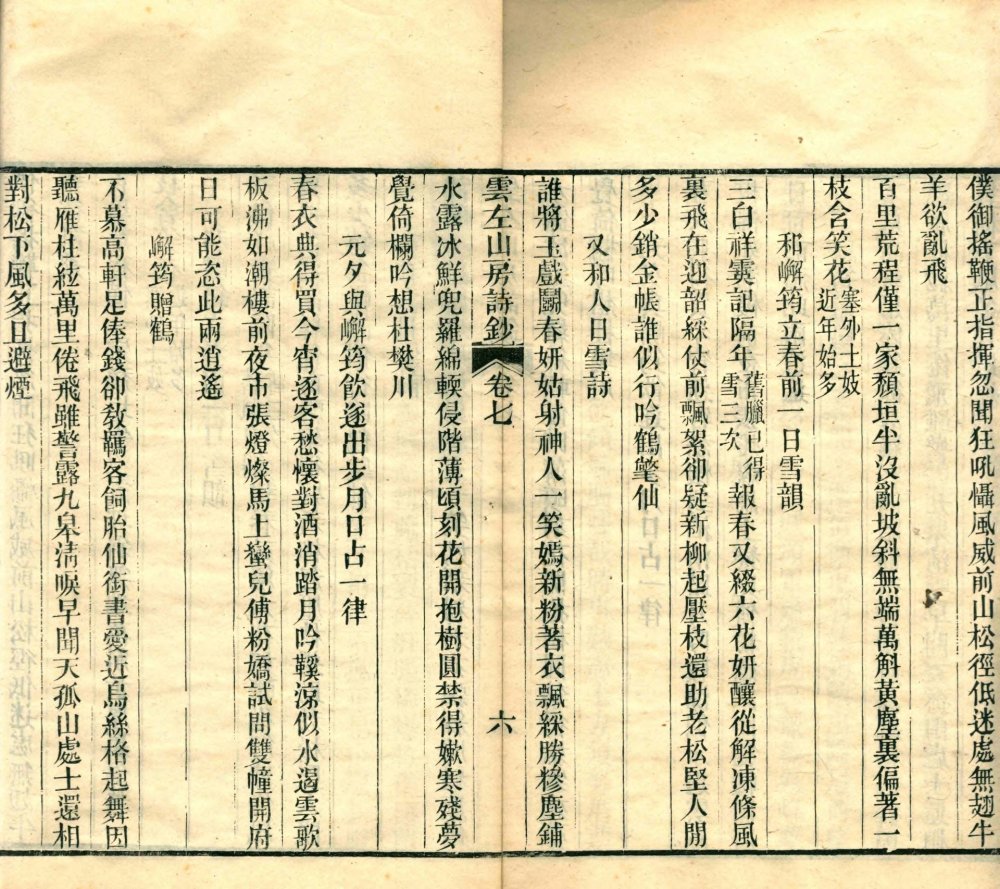 僕御搖鞭正指揮忽聞狂吼懾風威前山松徑低迷處無翅牛
羊欲亂飛
百里荒程僅一家頹垣半沒亂坡斜無端萬斛黃塵裏偏著一
枝含笑花塞外土妓近年始多
和嶰筠立春前一日雪韻
三白祥霙記隔年舊臘已得雪三次報春又綴六花妍釀從解凍條風
裏飛在迎韶綵仗前飄絮卻疑新柳起壓枝還助老松堅人閒
多少銷金帳誰似行吟鶴氅仙
又和人日雪詩
誰將玉戲鬭春妍姑射神人一笑嫣新粉著衣飄綵勝糝塵鋪
雲左山房詩鈔 卷七 六
水露冰鮮兜羅綿輭侵階薄頃刻花開抱樹圓禁得嫩寒殘夢
覺倚欄吟想杜樊川
元夕與嶰筠飲遂出步月口占一律
春衣典得買今宵逐客愁懷對酒消踏月吟鞵涼似水遏雲歌
板沸如潮樓前夜市張燈燦馬上蠻兒傅粉嬌試問雙幢開府
日可能恣此兩逍遙
嶰筠贈鶴
不慕高軒足俸錢卻敎羈客飼胎仙銜書愛近烏絲格起舞因
聽雁柱絃萬里倦飛雖警露九皋淸唳早聞天孤山處士還相
對松下風多且避煙